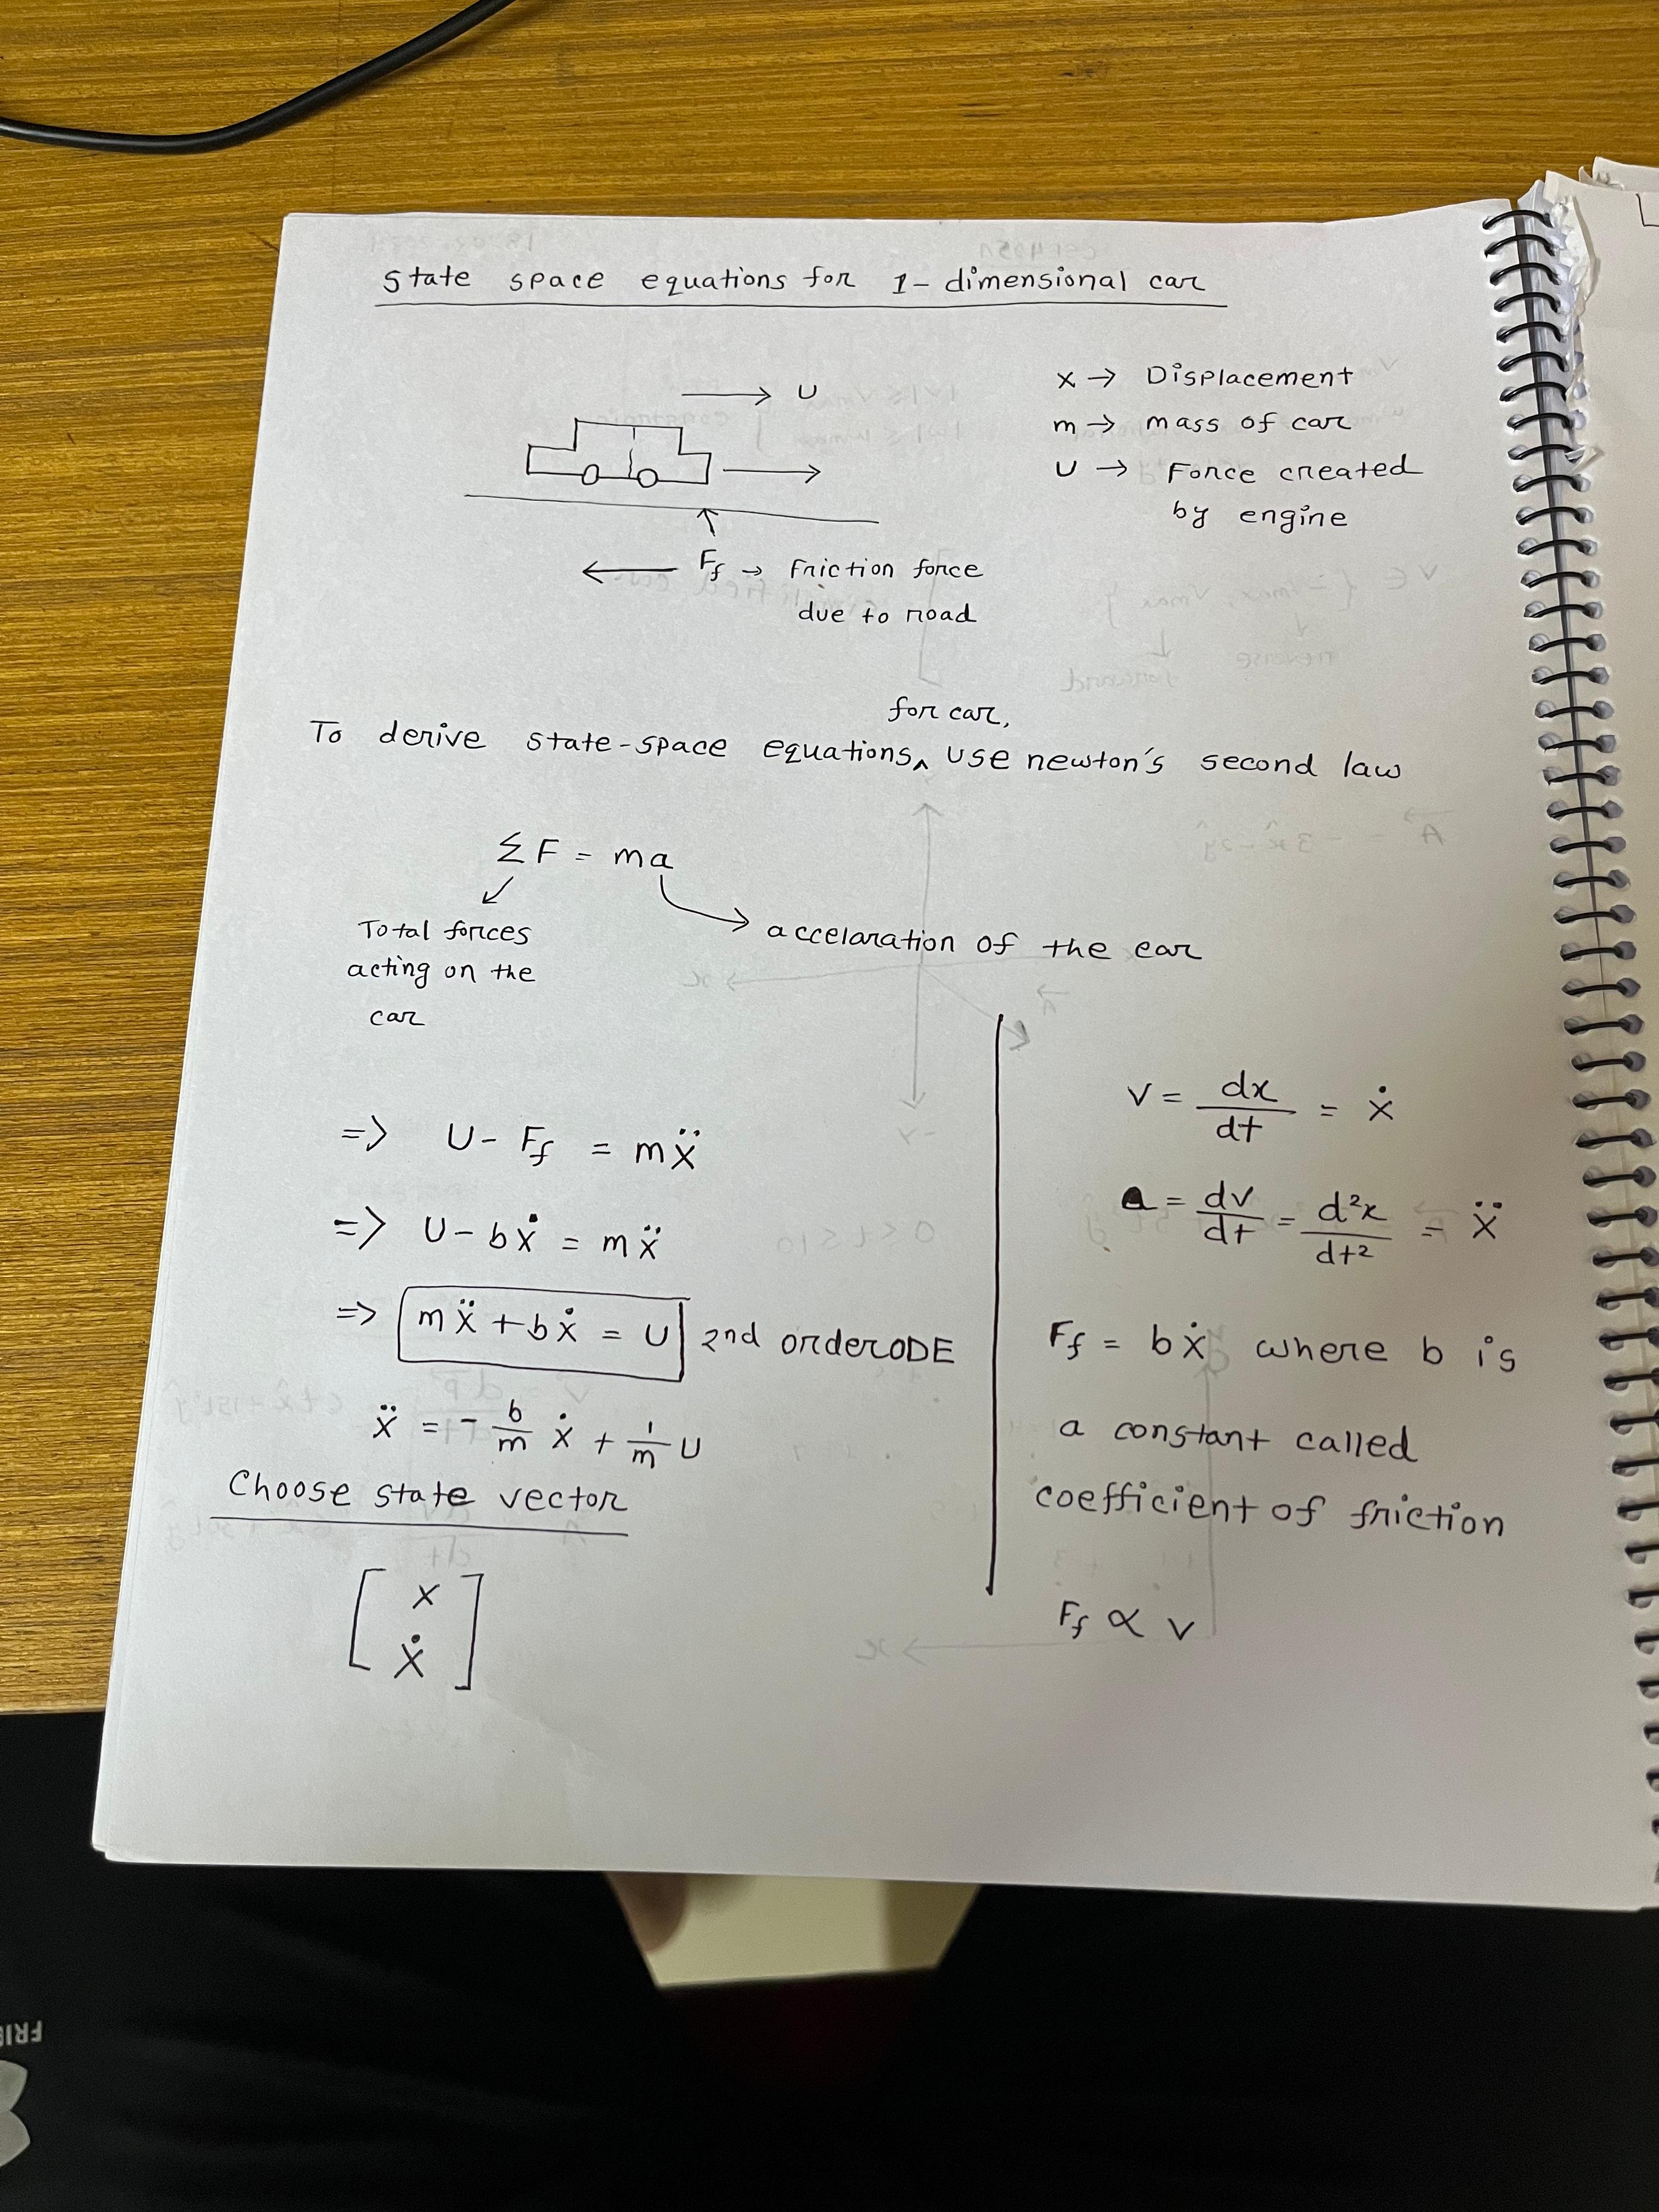 State space equations for 1-dimensional car
→ U
x → Displacement
m → mass of car
U → Force created
by engine
← Ff → Friction force
due to road
for car,
To derive state-space equations^ use newton's second law
ΣF = ma
Total forces
acting on the
car
accelaration of the car
=> U - Ff = mẍ
=> U - bẋ = mẍ
=> mẍ + bẋ = U 2nd order ODE
ẍ = - b/m ẋ + 1/m U
Choose state vector
[ x
ẋ ]
v = dx/dt = ẋ
a = dv/dt = d²x/dt² = ẍ
Ff = bẋ where b is
a constant called
coefficient of friction
Ff ∝ v